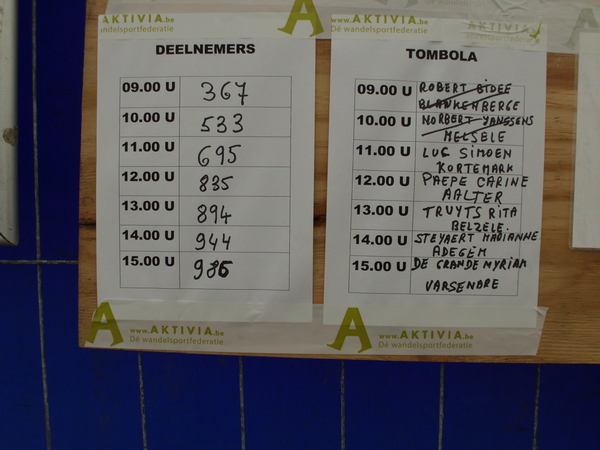 www.AKTIVIA.be
Dé wandelsportfederatie
www.AKTIVIA.be
Dé wandelsportfederatie
AKTIVIA.be
DEELNEMERS
09.00 U 367
10.00 U 533
11.00 U 695
12.00 U 835
13.00 U 894
14.00 U 944
15.00 U 986
TOMBOLA
09.00 U ROBERT BIDEE
BLANKENBERGE
10.00 U NORBERT YANSSENS
MELSELE
11.00 U LUC SIMOEN
KORTEMARK
12.00 U PAEPE CARINE
AALTER
13.00 U TRUYTS RITA
BELZELE.
14.00 U STEYAERT MARIANNE
ADEGEM
15.00 U DE GRANDE MYRIAM
VARSENARE
www.AKTIVIA.be
Dé wandelsportfederatie
www.AKTIVIA.be
Dé wandelsportfederatie